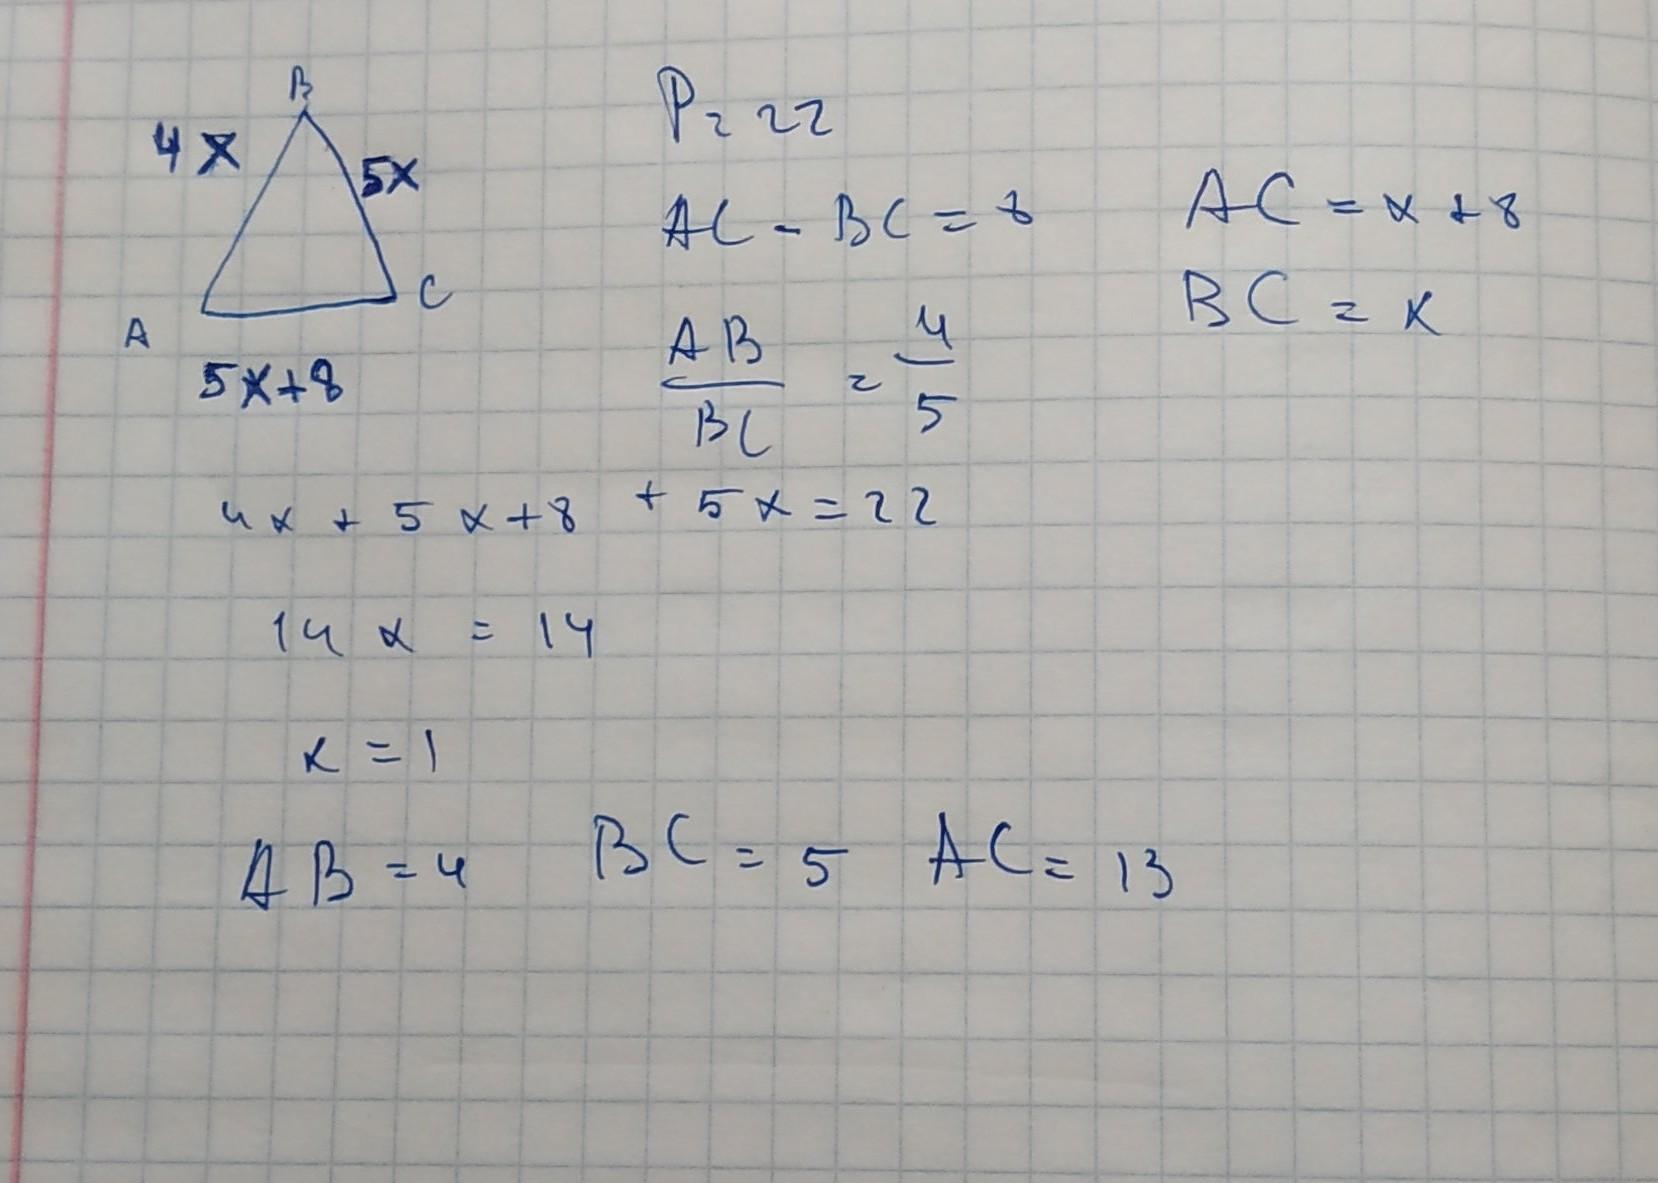 B
4x
5x
A
C
5x+8
P = 22
AC - BC = 8
AC = x + 8
BC = x
AB/BC = 4/5
4x + 5x+8 + 5x = 22
14x = 14
x = 1
AB = 4 BC = 5 AC = 13